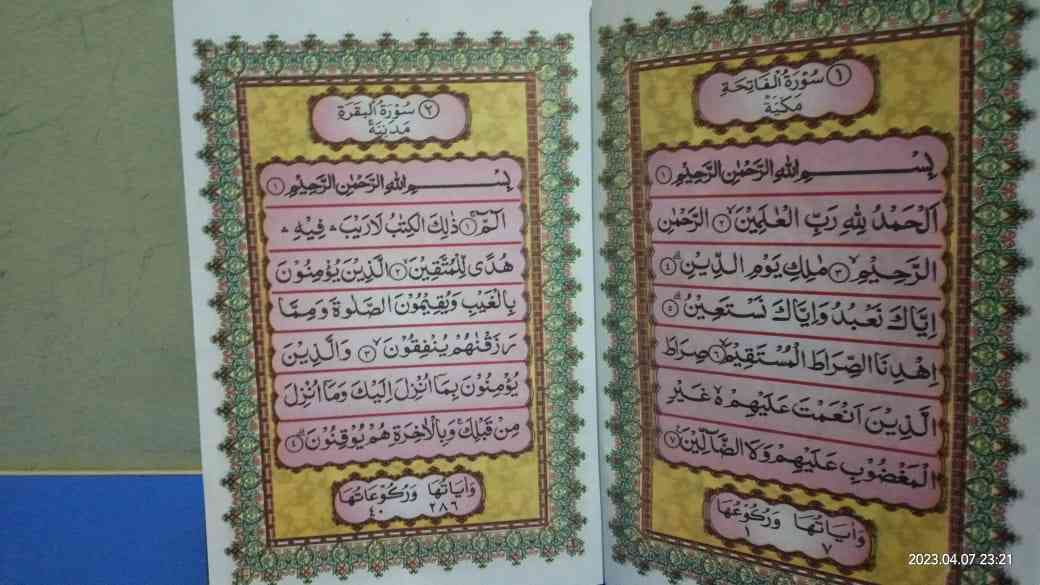 ١ سُوْرَةُ الْفَاتِحَةِ
مَكِّيَّةٌ
بِسْـــــــــمِ اللّٰهِ الرَّحْمٰنِ الرَّحِيْمِ ١
اَلْحَمْدُ لِلّٰهِ رَبِّ الْعٰلَمِيْنَ ٢ الرَّحْمٰنِ
الرَّحِيْمِ ٣ مٰلِكِ يَوْمِ الدِّيْنِ ٤
اِيَّاكَ نَعْبُدُ وَاِيَّاكَ نَسْتَعِيْنُ ٥
اِهْدِنَا الصِّرَاطَ الْمُسْتَقِيْمَ ٦ صِرَاطَ
الَّذِيْنَ اَنْعَمْتَ عَلَيْهِمْ ەۙ غَيْرِ
الْمَغْضُوْبِ عَلَيْهِمْ وَلَا الضَّاۤلِّيْنَ ٧
وَاٰيَاتُهَا وَرُكُوْعُهَا
٧ ١
٢ سُوْرَةُ الْبَقَرَةِ
مَدَنِيَّةٌ
بِسْـــــــــمِ اللّٰهِ الرَّحْمٰنِ الرَّحِيْمِ ١
الۤمّۤ ١ ذٰلِكَ الْكِتٰبُ لَا رَيْبَ ۛ فِيْهِ ۛ
هُدًى لِّلْمُتَّقِيْنَ ٢ الَّذِيْنَ يُؤْمِنُوْنَ
بِالْغَيْبِ وَيُقِيْمُوْنَ الصَّلٰوةَ وَمِمَّا
رَزَقْنٰهُمْ يُنْفِقُوْنَ ٣ وَالَّذِيْنَ
يُؤْمِنُوْنَ بِمَا اُنْزِلَ اِلَيْكَ وَمَا اُنْزِلَ
مِنْ قَبْلِكَ وَبِالْاٰخِرَةِ هُمْ يُوْقِنُوْنَ ٤
وَاٰيَاتُهَا وَرُكُوْعَاتُهَا
٢٨٦ ٤٠
2023.04.07 23:21